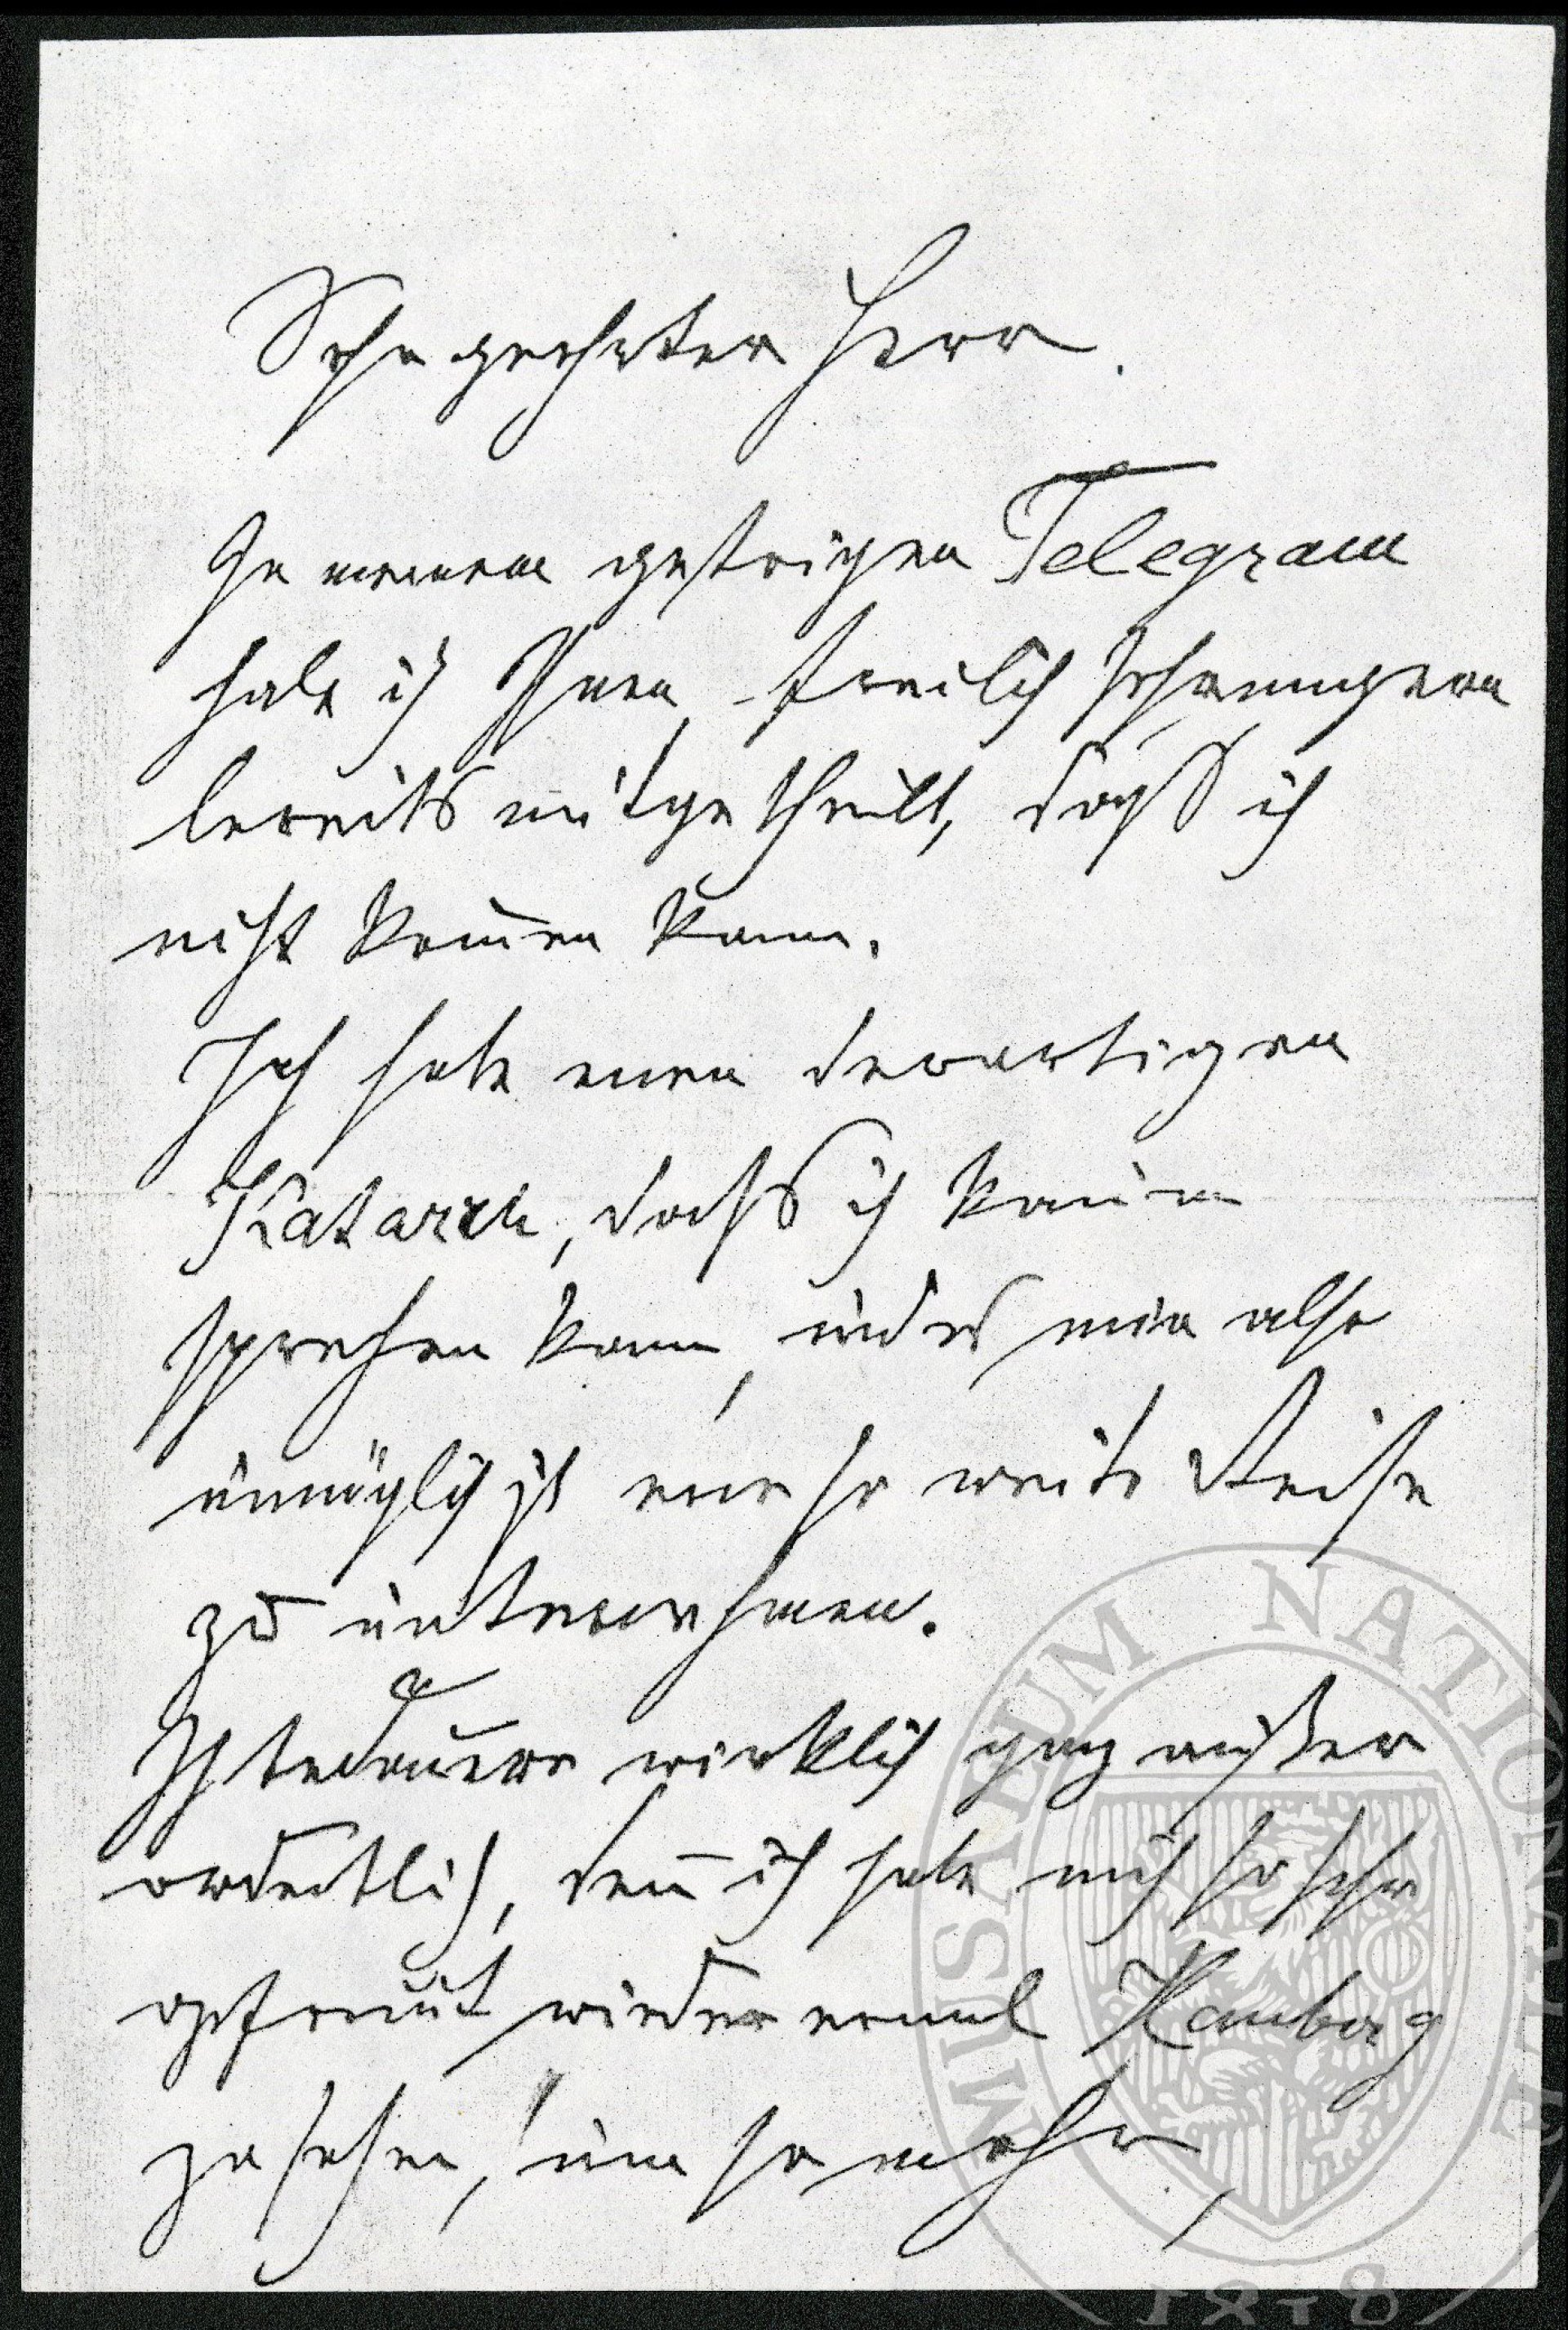 Sehr geehrter Herr.
In meinem gestrigen Telegram
habe ich Ihnen, freilich
bereits mitgetheilt, daß ich
nicht kom̅en kann.
Ich habe einen derartigen
Katarrh, daß ich kaum
sprechen kann, und es mir also
unmöglich ist eine so weite Reise
zu unternehmen.
Ich bedauere wirklich ganz außer
ordentlich, den̅ ich habe mich so sehr
gefreut wieder einmal
zu sehen, um so mehr,
MUSAEUM NATIONALE
1818